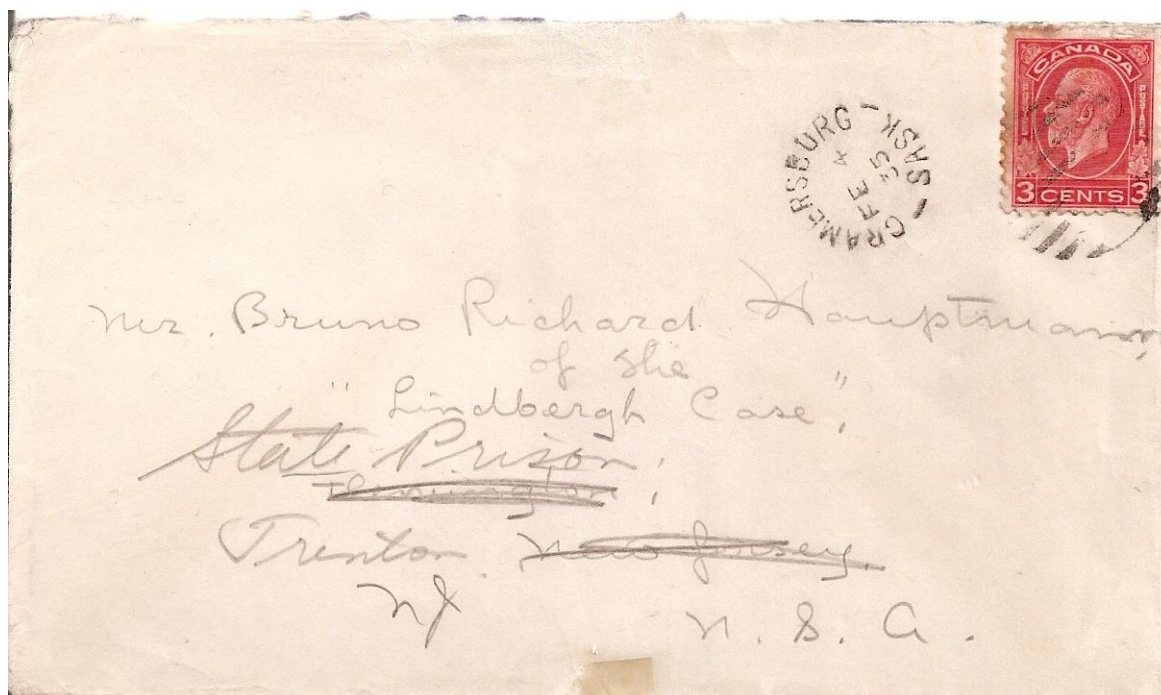 CANADA
POSTAGE POSTAGE
3 CENTS 3
CRAMERSBURG - SASK -
FE 4
35
Mr. Bruno Richard Hauptmann,
of the
"Lindbergh Case",
State Prison,
Flemington,
Trenton New Jersey,
NJ U.S.A.